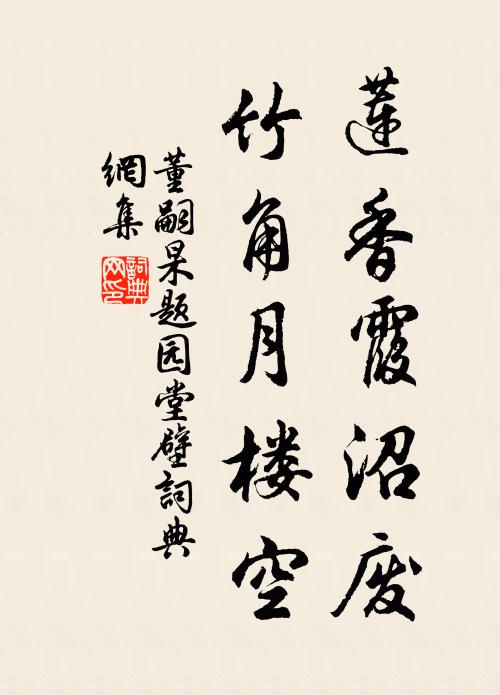 莲香霞沼废
竹角月楼空
董嗣杲题园堂壁詞典
網集
詞典网印